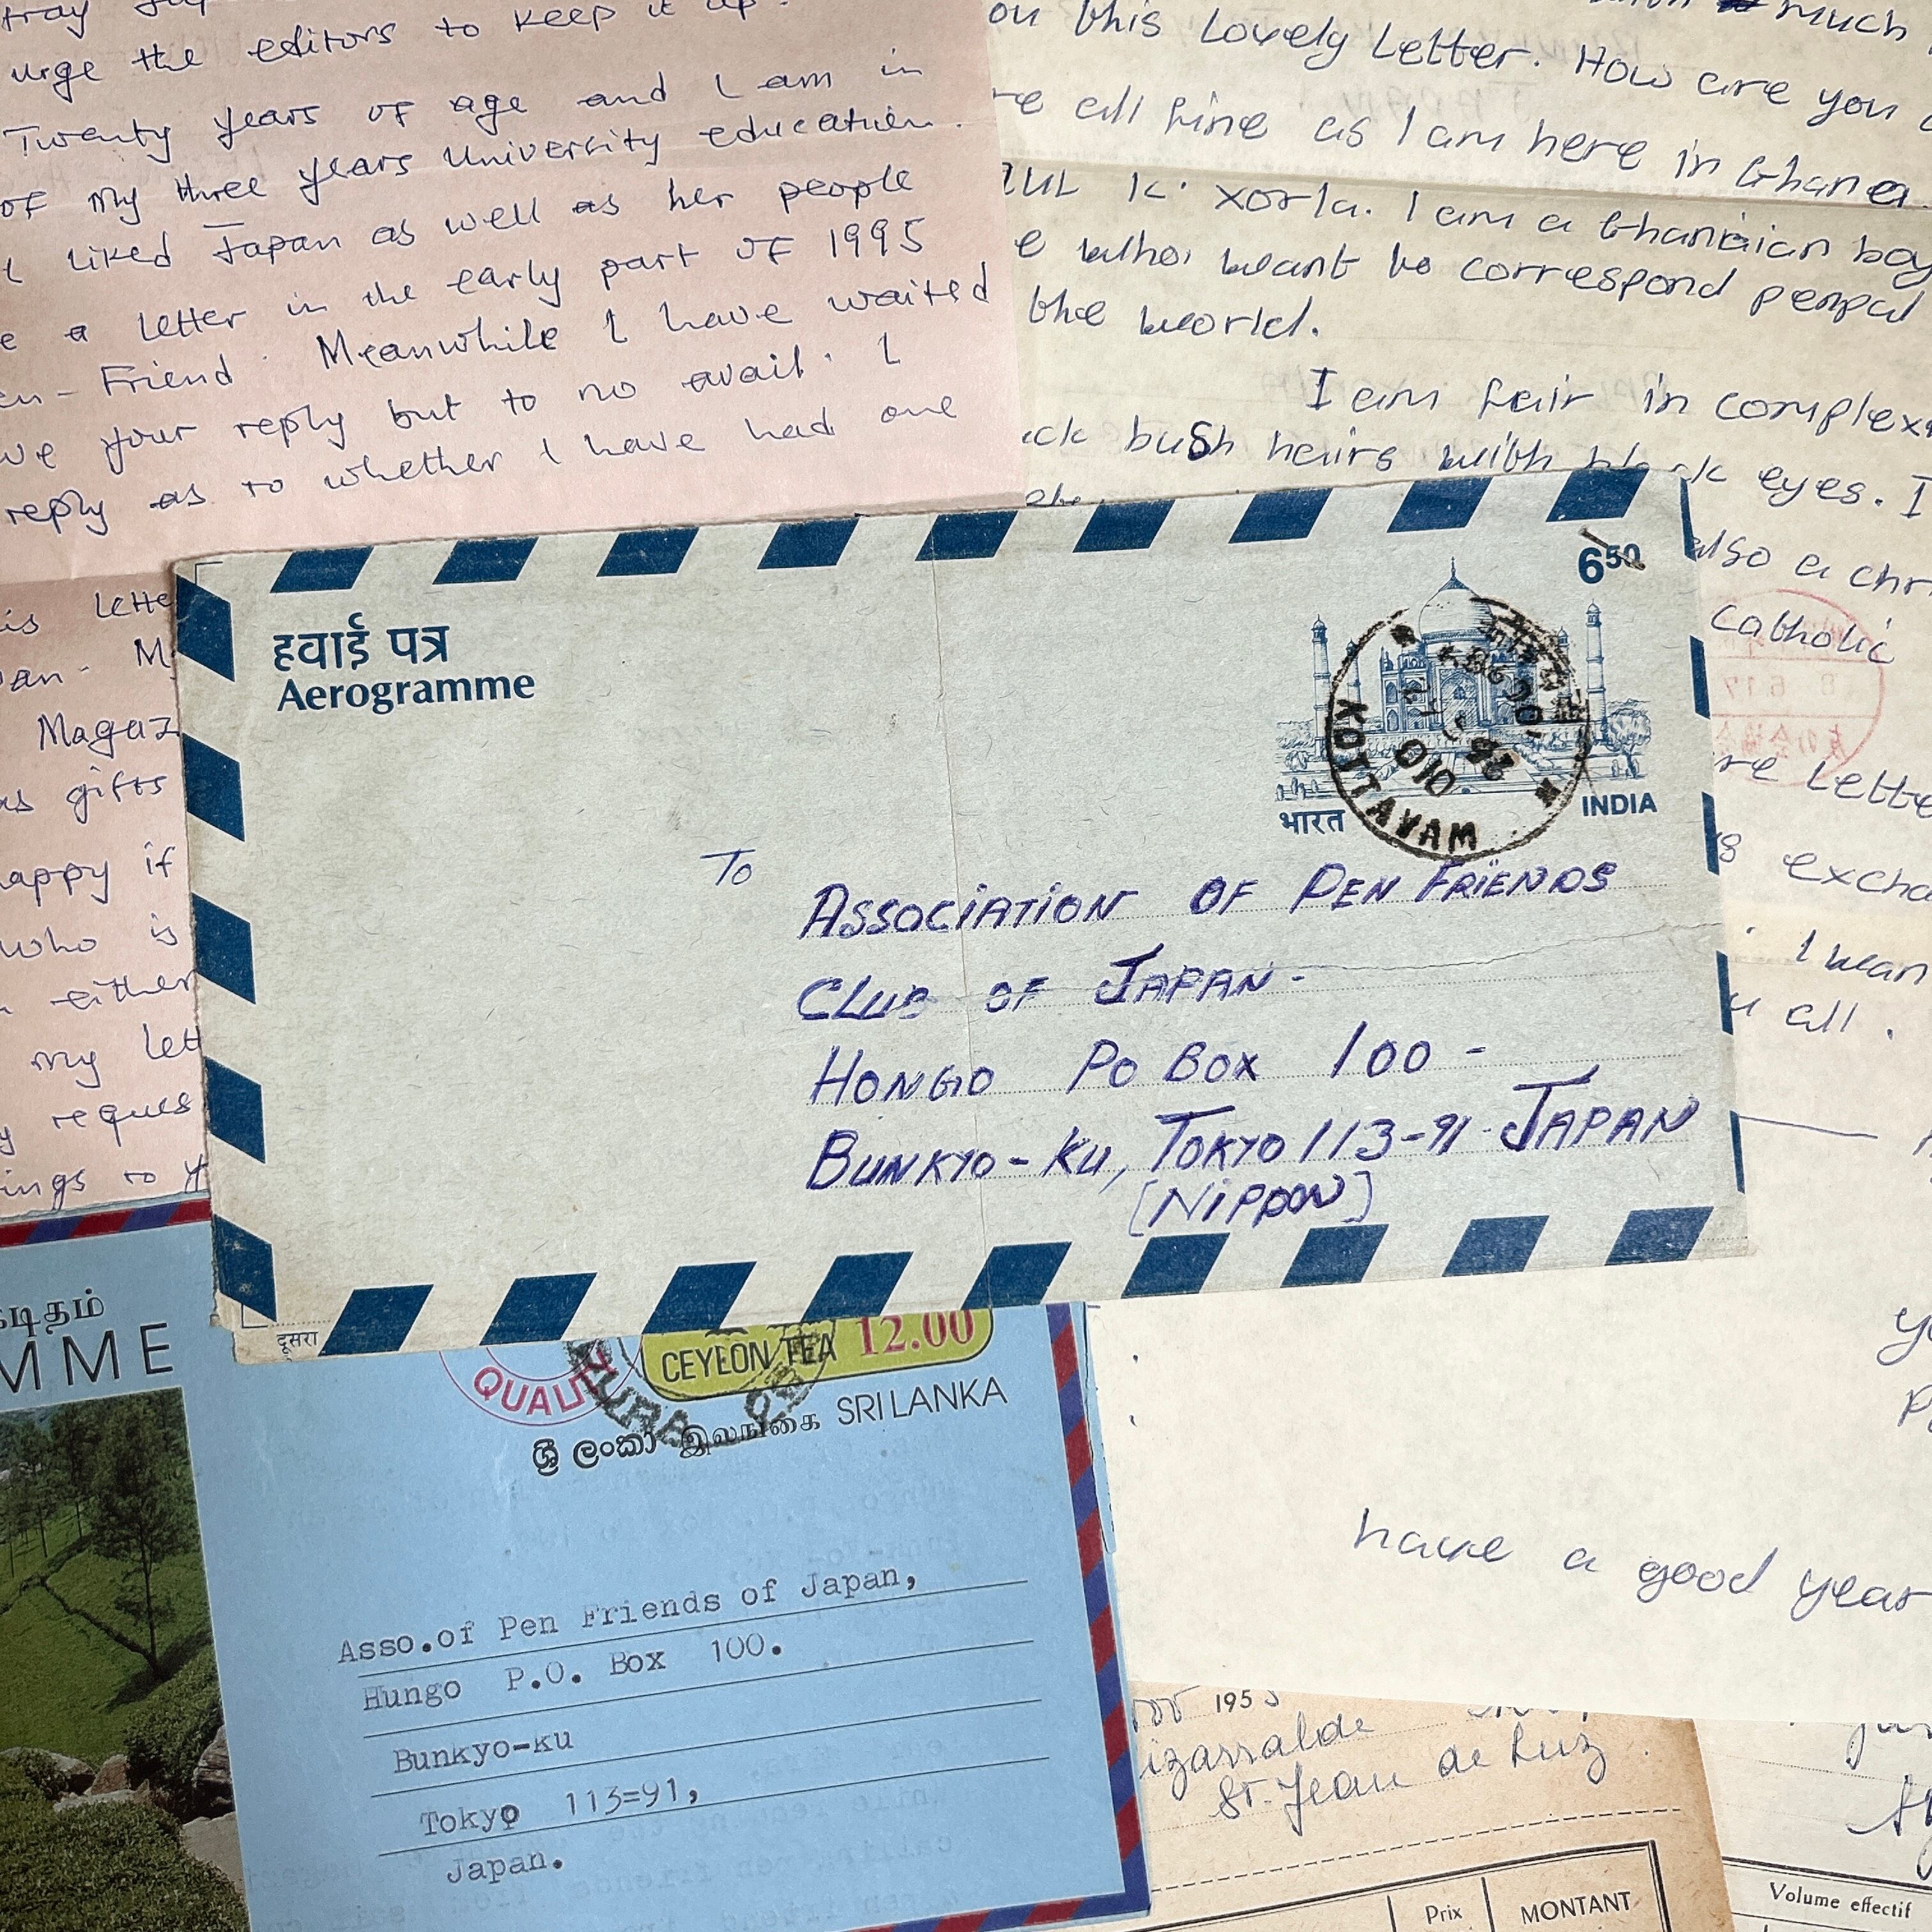 urge the editors to keep it up.
Twenty years of age and I am in
of my three years University education.
I liked Japan as well as her people
e a letter in the early part of 1995
en-Friend. Meanwhile I have waited
ve your reply but to no avail. I
reply as to whether I have had one
is Lette
an- M
Magaz
as gifts
appy if
who is
either
my lett
y reques
ings to y
much
ou this Lovely Letter. How are you
re all fine as I am here in Ghana.
K. Xorla. I am a Ghanaian boy
e who, want to correspond penpal
the world.
I am fair in complex
ck bush hairs with black eyes. I
also a chr
Catholic
re Lette
s excha
I wan
u all.
have a good year
हवाई पत्र
Aerogramme
6.50
भारत
INDIA
KOTTAYAM
010
To
ASSOCIATION OF PEN FRIENDS
CLUB OF JAPAN-
HONGO PO BOX 100-
BUNKYO-KU, TOKYO 113-91-JAPAN
[NIPPON]
दूसरा
கடிதம்
MME
QUALIT
CEYLON TEA 12.00
ශ්‍රී ලංකා இலங்கை SRI LANKA
Asso.of Pen Friends of Japan,
Hungo P.O. Box 100.
Bunkyo-ku
Tokyo 113=91,
Japan.
195
izarralde
St. Jean de Luz.
Prix
MONTANT
Volume effectif